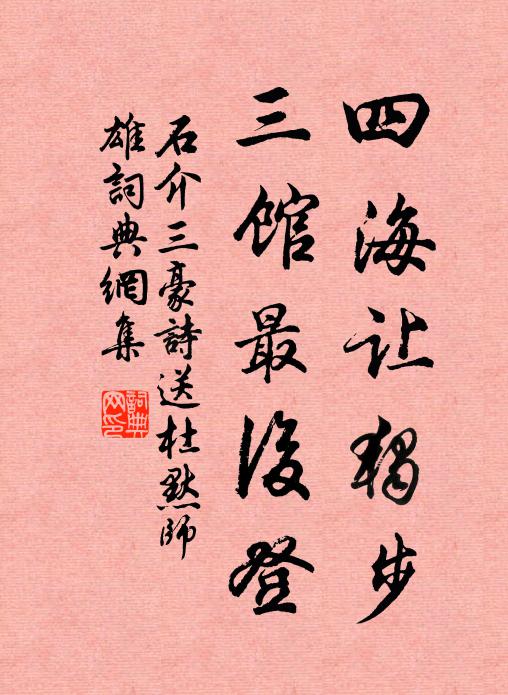 四海让獨步
三馆最後登
石介三豪詩送杜默師
雄詞典網集
詞典网印